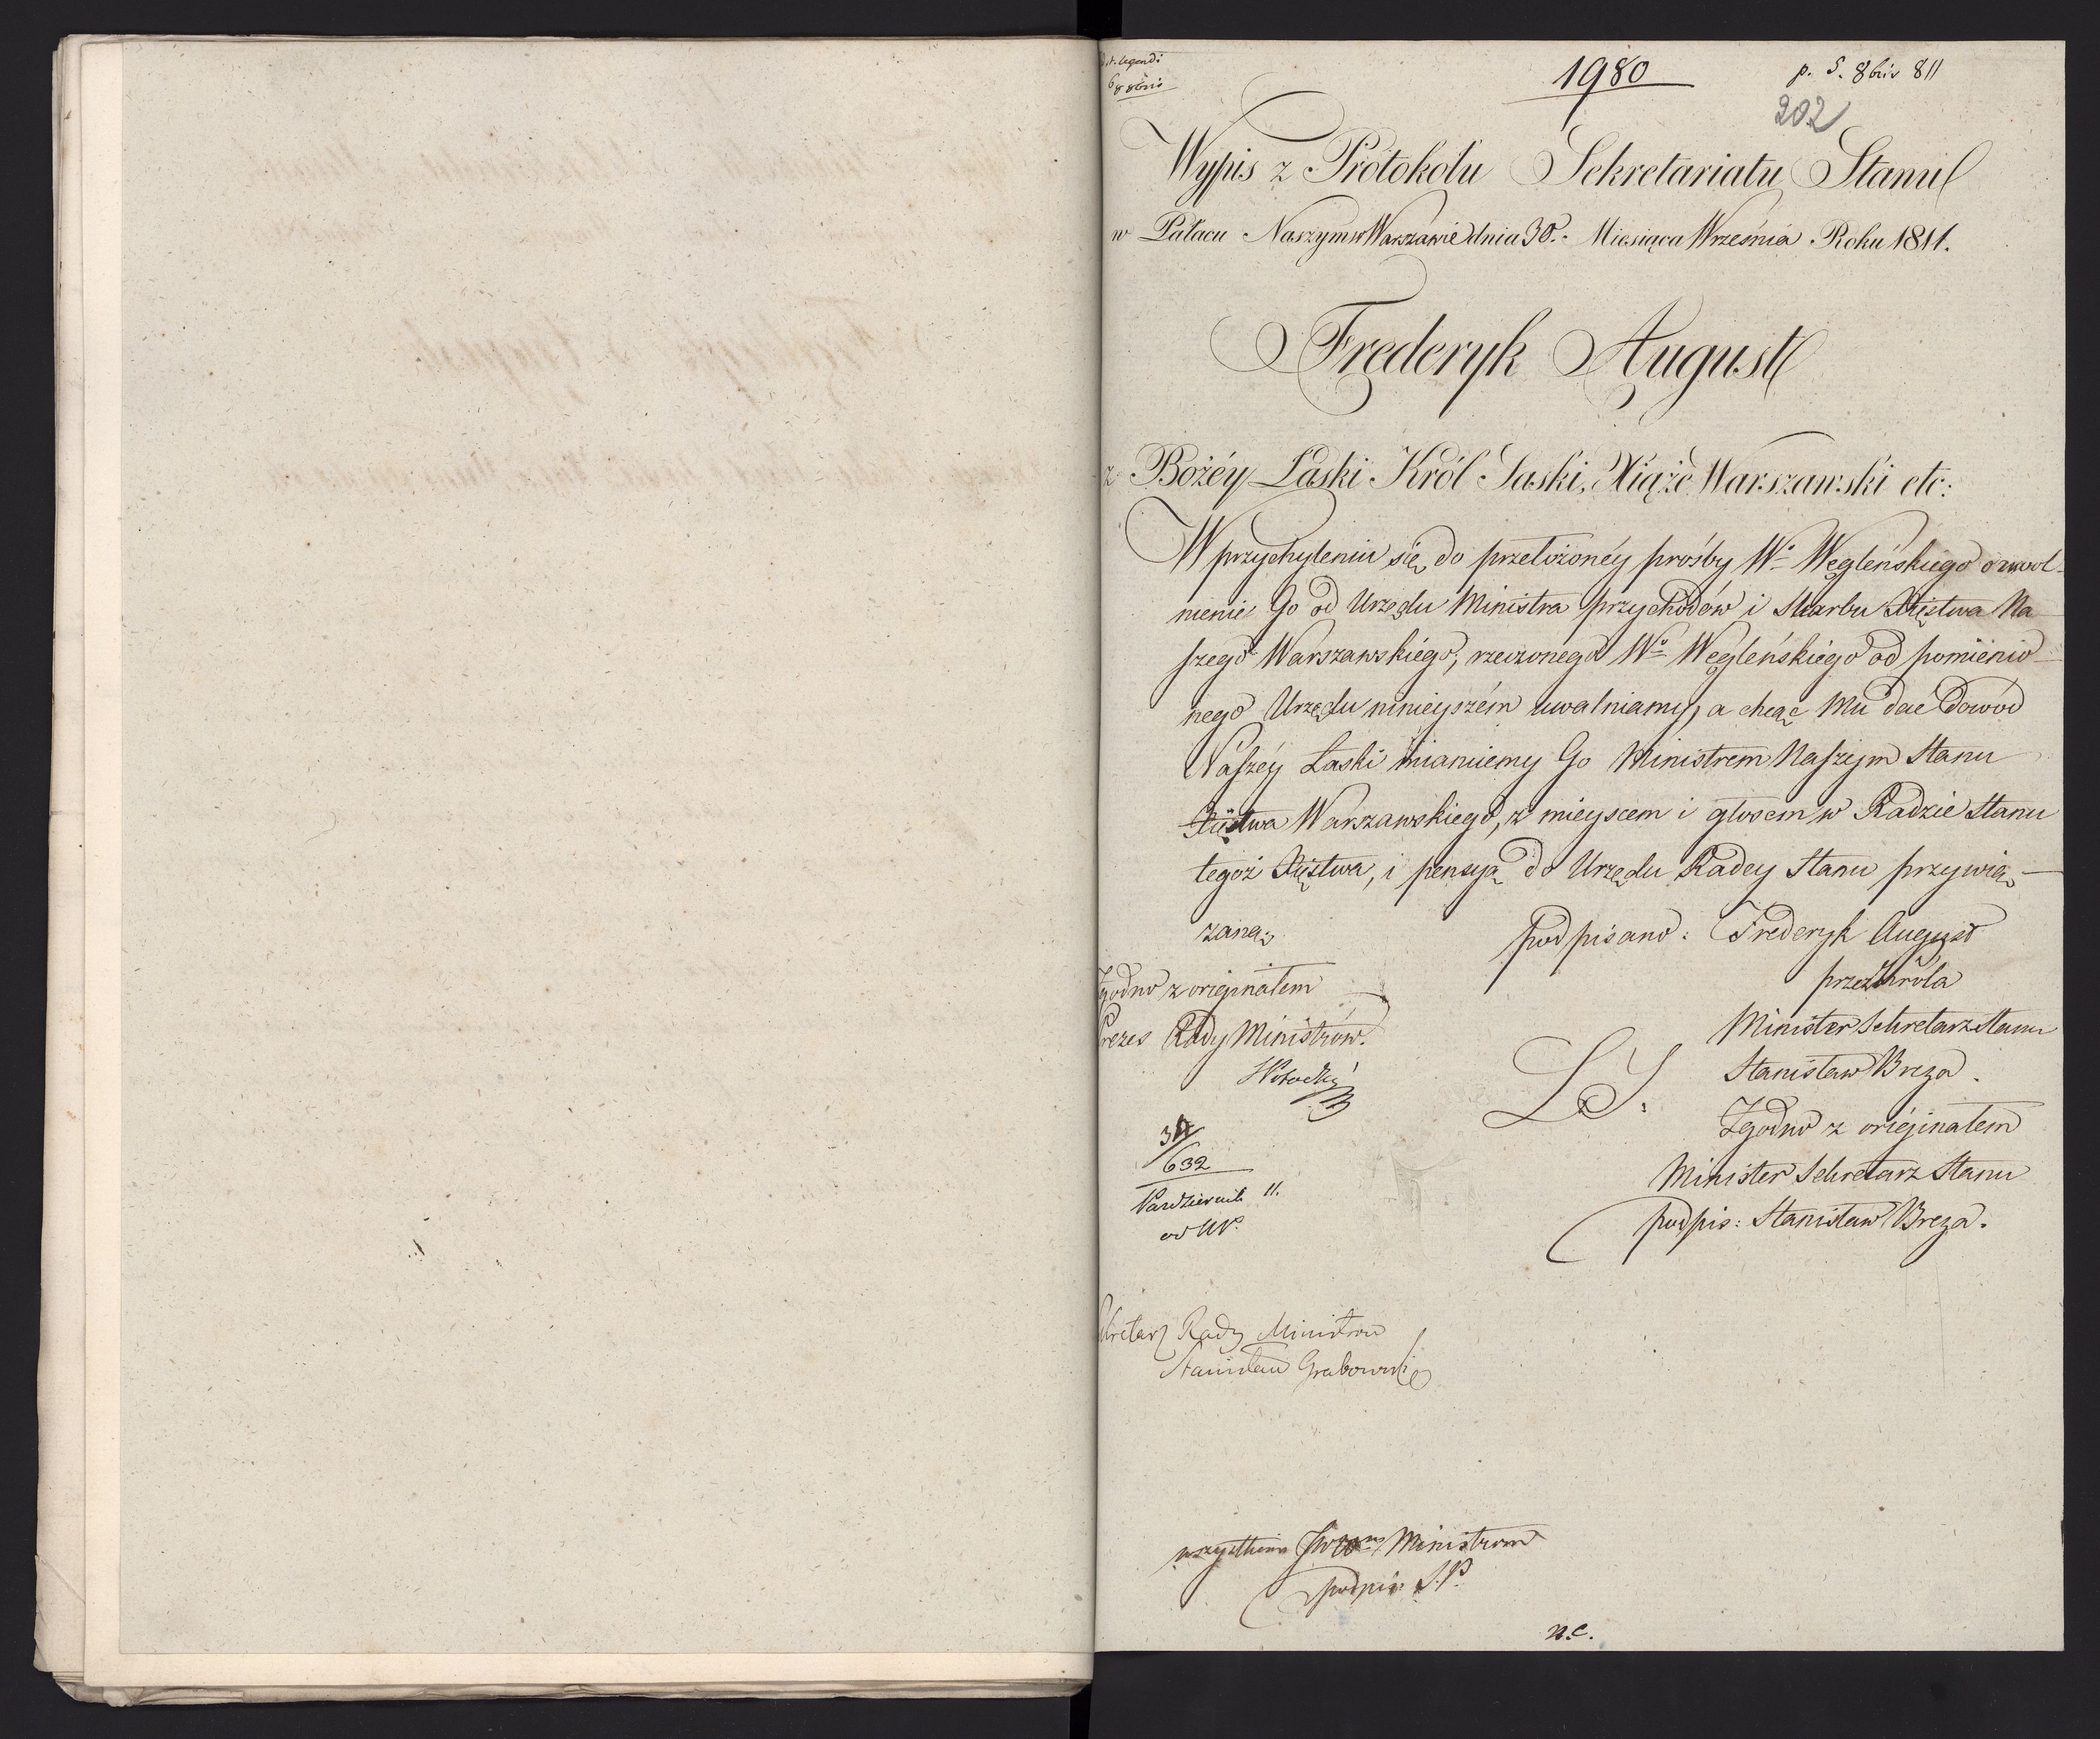 1980
p. 5. 8bris 811
202
Wypis z Protokołu Sekretariatu Stanu
w Pałacu Naszym w Warszawie dnia 30. Miesiąca Września Roku 1811.
Frederyk August
z Bożéy Łaski Król Saski, Xiąże Warszawski etc:
W przychyleniu się do przełożonéy prośby Wo Węgleńskiego o uwol-
nienie Go od Urzędu Ministra przychodów i Skarbu Xięstwa Na
szego Warszawskiégo, rzeczonego Wo Węgleńskiégo od pomiénio-
nego Urzędu ninieyszém uwalniamy, a chcąc Mu dać Dowód
Naszéy Łaski mianuiemy Go Ministrem Naszym Stanu
Xięstwa Warszawskiego, z mieyscem i głosem w Radzie Stanu
tegoż Xięstwa, i pensyą do Urzędu Radcy Stanu przywią-
zaną.
podpisano: Frederyk August
przez Króla
Minister Sekretarz Stanu
Stanisław Breza.
L.S.
Zgodno z originałem
Minister Sekretarz Stanu
podpis: Stanisław Breza.
Zgodno z originałem
Prezes Rady Ministrów.
632
Październik 11.
Sekretarz Rady Ministrów
Stanisław Grabowski
wszystkim Ministrom
podpis S.P.
n.c.